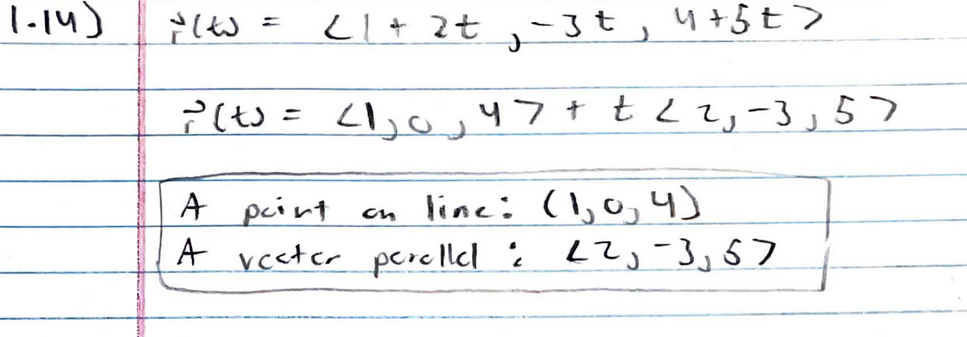 1.14) r⃗(t) = <1 + 2t, -3t, 4+5t>
r⃗(t) = <1, 0, 4> + t <2, -3, 5>
A point on line: (1, 0, 4)
A vector parallel: <2, -3, 5>